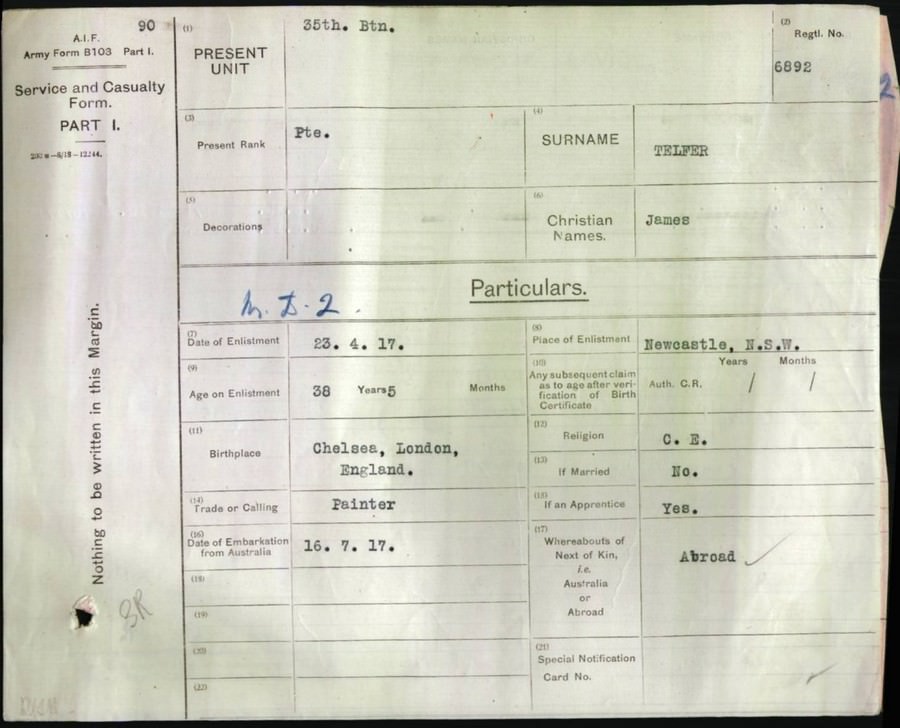 90
A.I.F.
Army Form B103 Part I.
Service and Casualty
Form.
PART I.
Nothing to be written in this Margin.
(1)
PRESENT
UNIT
35th. Btn.
(2)
Regtl. No.
6892
2
(3)
Present Rank
Pte.
(4)
SURNAME
TELFER
(5)
Decorations
(6)
Christian
Names.
James
Particulars.
M. D. 2.
(7)
Date of Enlistment
23. 4. 17.
(8)
Place of Enlistment
Newcastle, N.S.W.
(9)
Age on Enlistment
38 Years 5 Months
(10)
Any subsequent claim
as to age after veri-
fication of Birth
Certificate
Years Months
Auth. C.R. / /
(11)
Birthplace
Chelsea, London,
England.
(12)
Religion
C. E.
(13)
If Married
No.
(14)
Trade or Calling
Painter
(15)
If an Apprentice
Yes.
(16)
Date of Embarkation
from Australia
16. 7. 17.
(17)
Whereabouts of
Next of Kin,
i.e.
Australia
or
Abroad
Abroad
(18)
(19)
(20)
(21)
Special Notification
Card No.
(22)